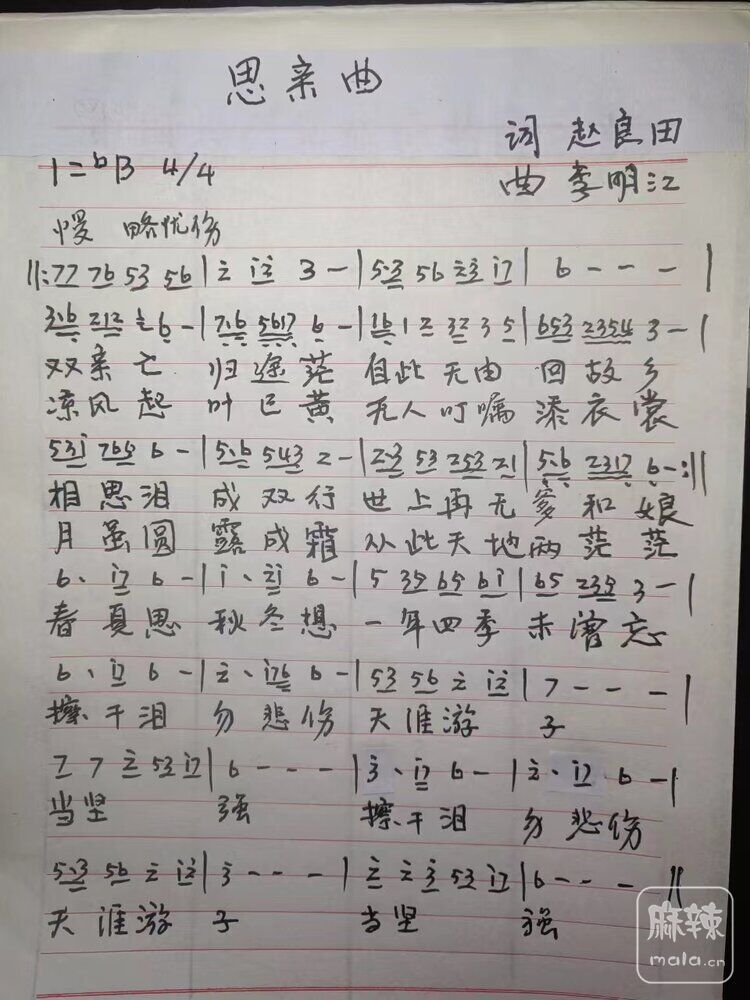 思亲曲
词 赵良田
1=ᵇB 4/4
曲 李明江
慢 略忧伤
‖:77 76 53 56 | 2̇ i2̇ 3 - | 5·3 56 2̇3̇ i7 | 6 - - - |
3·6 2121 6 - | 7·6 5617 6 - | 16 1 2 32 3 5 | 653 2354 3 - |
双亲亡 归途茫 自此无由 回故乡
凉风起 叶已黄 无人叮嘱 添衣裳
53i 765 6 - | 5·6 543 2 - | 2·3 53 253 21 | 5·6 2317 6 - :‖
相思泪 成双行 世上再无 爹和娘
月虽圆 露成霜 从此天地两 茫茫
6· i7 6 - | i· 2̇i 6 - | 5 35 65 6i | 65 235 3 - |
春夏思 秋冬想 一年四季 未曾忘
6· i7 6 - | 2̇· i76 6 - | 53 56 2̇ i2̇ | 7 - - - |
擦干泪 勿悲伤 天涯游 子
7 7 2̇ 53 i7 | 6 - - - | 3̇· i7 6 - | 2̇· i7 6 - |
当坚 强 擦干泪 勿悲伤
5·3 56 2̇ i2̇ | 3̇ - - - | 2̇ 2̇ 3̇ 53 i7 | 6 - - - ‖
天涯游 子 当坚 强
麻辣
mala.cn